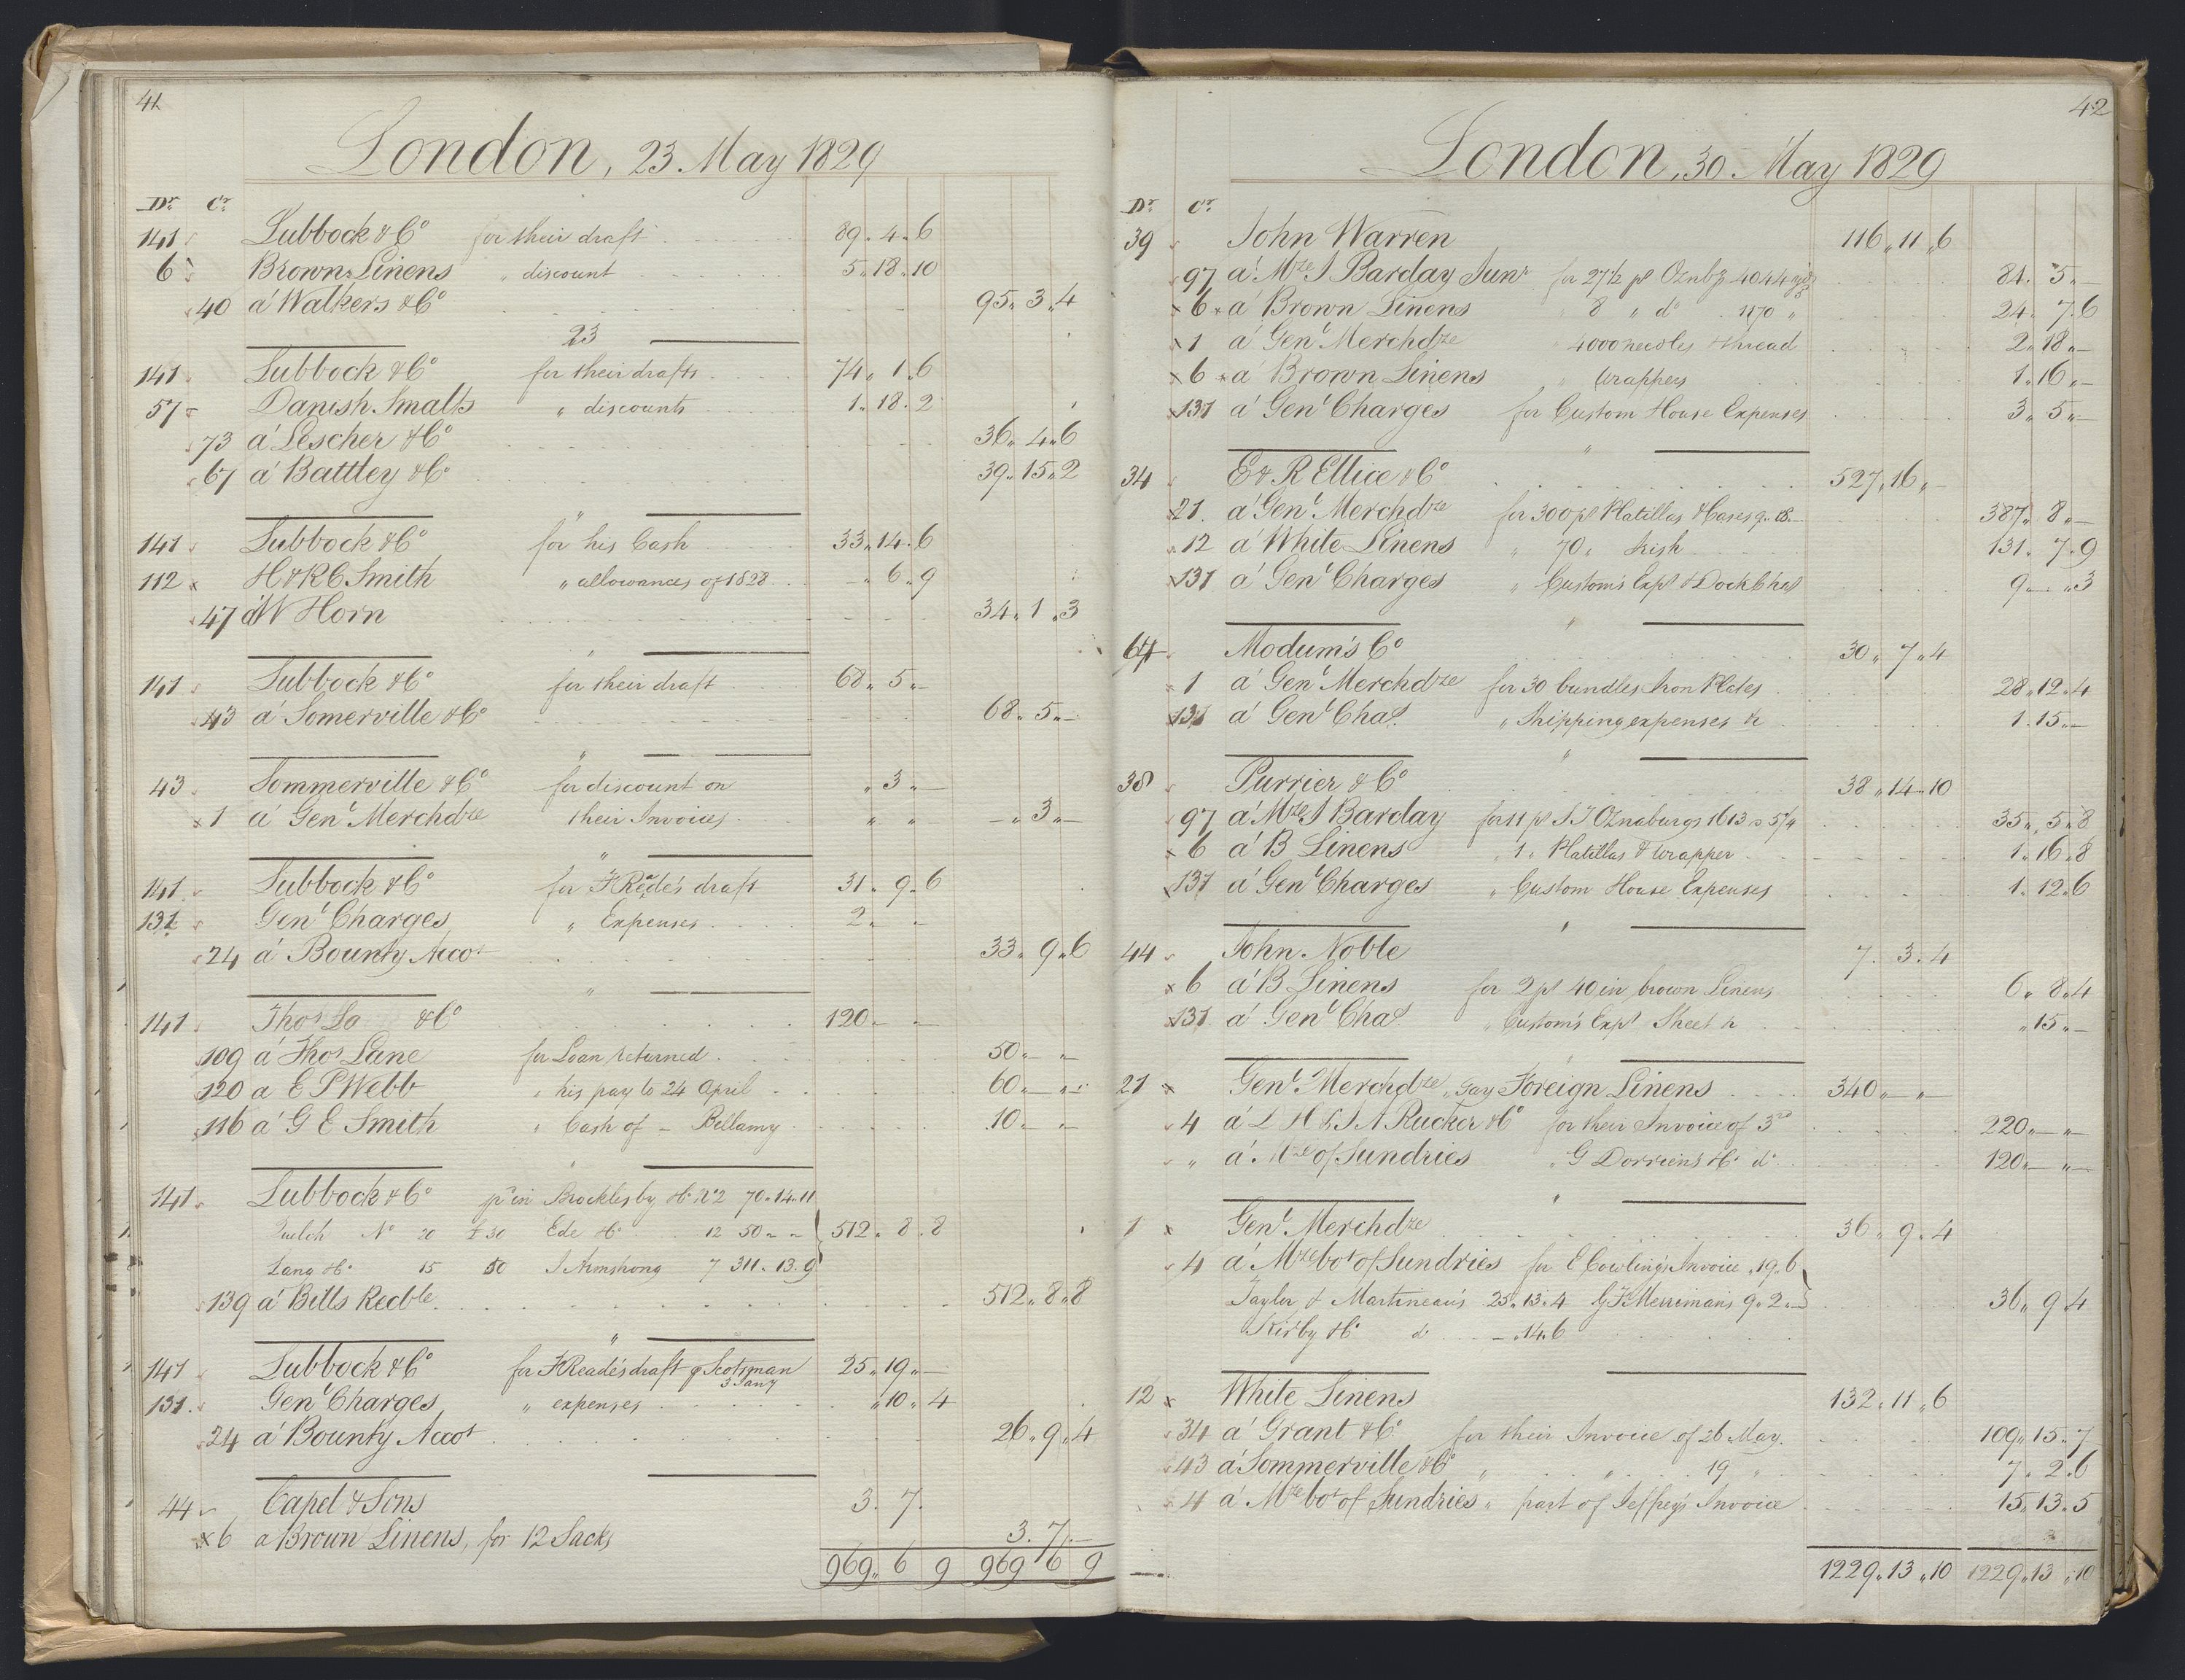 41
London, 23 May 1829
Dr Cr
141 Lubbock & Co for their draft 89 . 4 . 6
6 Brown Linens " discount 5 . 18 . 10
40 a' Walkers & Co 95 . 3 . 4
23
141 Lubbock & Co for their drafts 74 . 1 . 6
57 Danish Smalts " discounts 1 . 18 . 2
73 a' Lescher & Co 36 . 4 . 6
67 a' Battley & Co 39 . 15 . 2
"
141 Lubbock & Co for his Cash 33 . 14 . 6
112 H & R C Smith " allowances of 1828 - . 6 . 9
47 a' W Horn 34 . 1 . 3
"
141 Lubbock & Co for their draft 68 . 5 . -
43 a' Somerville & Co 68 . 5 . -
"
43 Sommerville & Co for discount on " 3 " -
1 a' Genl Merchdze their Invoices " " - " 3 " -
"
141 Lubbock & Co for F Rede's draft 31 . 9 . 6
131 Genl Charges " Expenses 2 . - . -
24 a' Bounty Accot 33 . 9 . 6
"
141 Thos La & Co 120 . - . -
109 a' Thos Lane for Loan returned 50 . - . -
120 a E P Webb " his pay to 24 April 60 . - . -
116 a' G E Smith " Cash of - Bellamy 10 . - . -
"
141 Lubbock & Co Brocklesby & Co No 2 70 . 14 . 11
No 20 £ 30 Ede & Co 12 50 - - 512 . 8 . 8
Lang & Co 15 50 J Armstrong 7 311 . 13 . 9
139 a' Bills Recble 512 . 8 . 8
"
141 Lubbock & Co for F Reade's draft p Scotsman 25 . 19 . -
3 Jany
131 Genl Charges " expenses " 10 . 4
24 a' Bounty Accot 26 . 9 . 4
44 Capel & Sons 3 . 7 .
6 a Brown Linens, for 12 Sacks 3 . 7 . -
969 . 6 9 969 6 9
42
London, 30 May 1829
Dr Cr
39 John Warren 116 . 11 . 6
97 a' Mze J Barclay Junr for 27 1/2 ps Oznbgs 4044 yds 81 . 5 . -
6 a' Brown Linens " 8 " do 1170 " 24 . 7 . 6
1 a' Genl Merchdze " 4000 needles & thread 2 . 18 . -
6 a' Brown Linens " Wrappers 1 . 16 . -
131 a' Genl Charges for Custom House Expenses 3 . 5 . -
"
34 E & R Ellice & Co 527 . 16 . -
21 a' Genl Merchdze for 300 ps Platillas & Cases 9 . 18 . - 387 . 8 . -
12 a' White Linens " 70 " Irish 131 . 7 . 9
131 a' Genl Charges " Customs Exps & Dock Chas 9 . - . 3
"
64 Modum's Co 30 . 7 . 4
1 a' Genl Merchdze for 30 bundles Iron Plates 28 . 12 . 4
131 a' Genl Chas " Shipping expenses &c 1 . 15 . -
"
38 Purrier & Co 38 . 14 . 10
97 a' Mze J Barclay for 11 ps Oznaburgs 1613 a 5 1/4 35 . 5 . 8
6 a' B Linens " 1 " Platillas & Wrapper 1 . 16 . 8
131 a' Genl Charges " Custom House Expenses 1 . 12 . 6
"
44 John Noble 7 . 3 . 4
6 a' B Linens for 2 ps 40 in brown Linens 6 . 8 . 4
131 a' Genl Chas " Customs Exps Sheet &c " 15 . -
"
21 Genl Merchdze, say Foreign Linens 340 . - . -
4 a' D H & J A Rucker & Co for their Invoice of 3rd 220 . - . -
" a' Mze of Sundries " G Dorrien's & Co do 120 . - . -
"
1 Genl Merchdze 36 . 9 . 4
4 a' Mze bot of Sundries for E Cowling's Invoice . 19 . 6
Taylor & Martineau's 25 . 13 . 4 G F Merriman's 9 . 2 . - 36 . 9 . 4
Kirby & Co do - . 14 . 6
12 White Linens 132 . 11 . 6
34 a' Grant & Co for their Invoice of 26 May 109 . 15 . 7
43 a' Sommerville & Co " " 19 " 7 . 2 . 6
4 a' Mze bot of Sundries " part of Jeffrey's Invoice 15 . 13 . 5
1229 . 13 . 10 1229 . 13 . 10